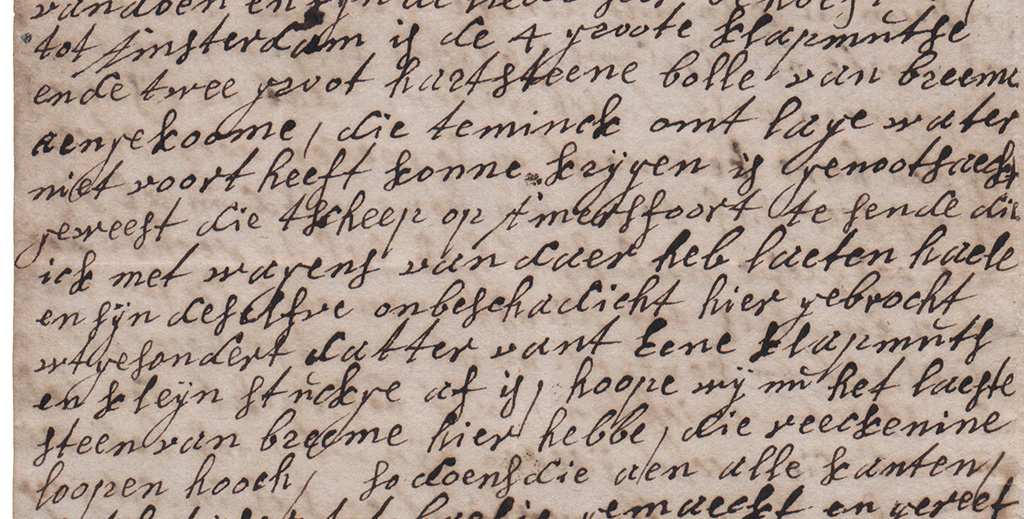 tot Amsterdam is de 4 groote klapmutse
ende twee groot hartsteene bolle van breeme
aengekoome, die teminck omt lage water
niet voort heeft konne krijgen is genootsaeckt
geweest die tscheep op Amersfoort te sende die
ick met wagens van daer heb laeten haele
en sijn deselfve onbeschadicht hier gebrocht
wtgesondert datter vant eene klapmuts
en kleijn stuckje af is, hoope wij nu het laeste
steen van breeme hier hebbe, die reeckenine
loopen hooch, so doens die aen alle kanten,
gemaeckt en gereet